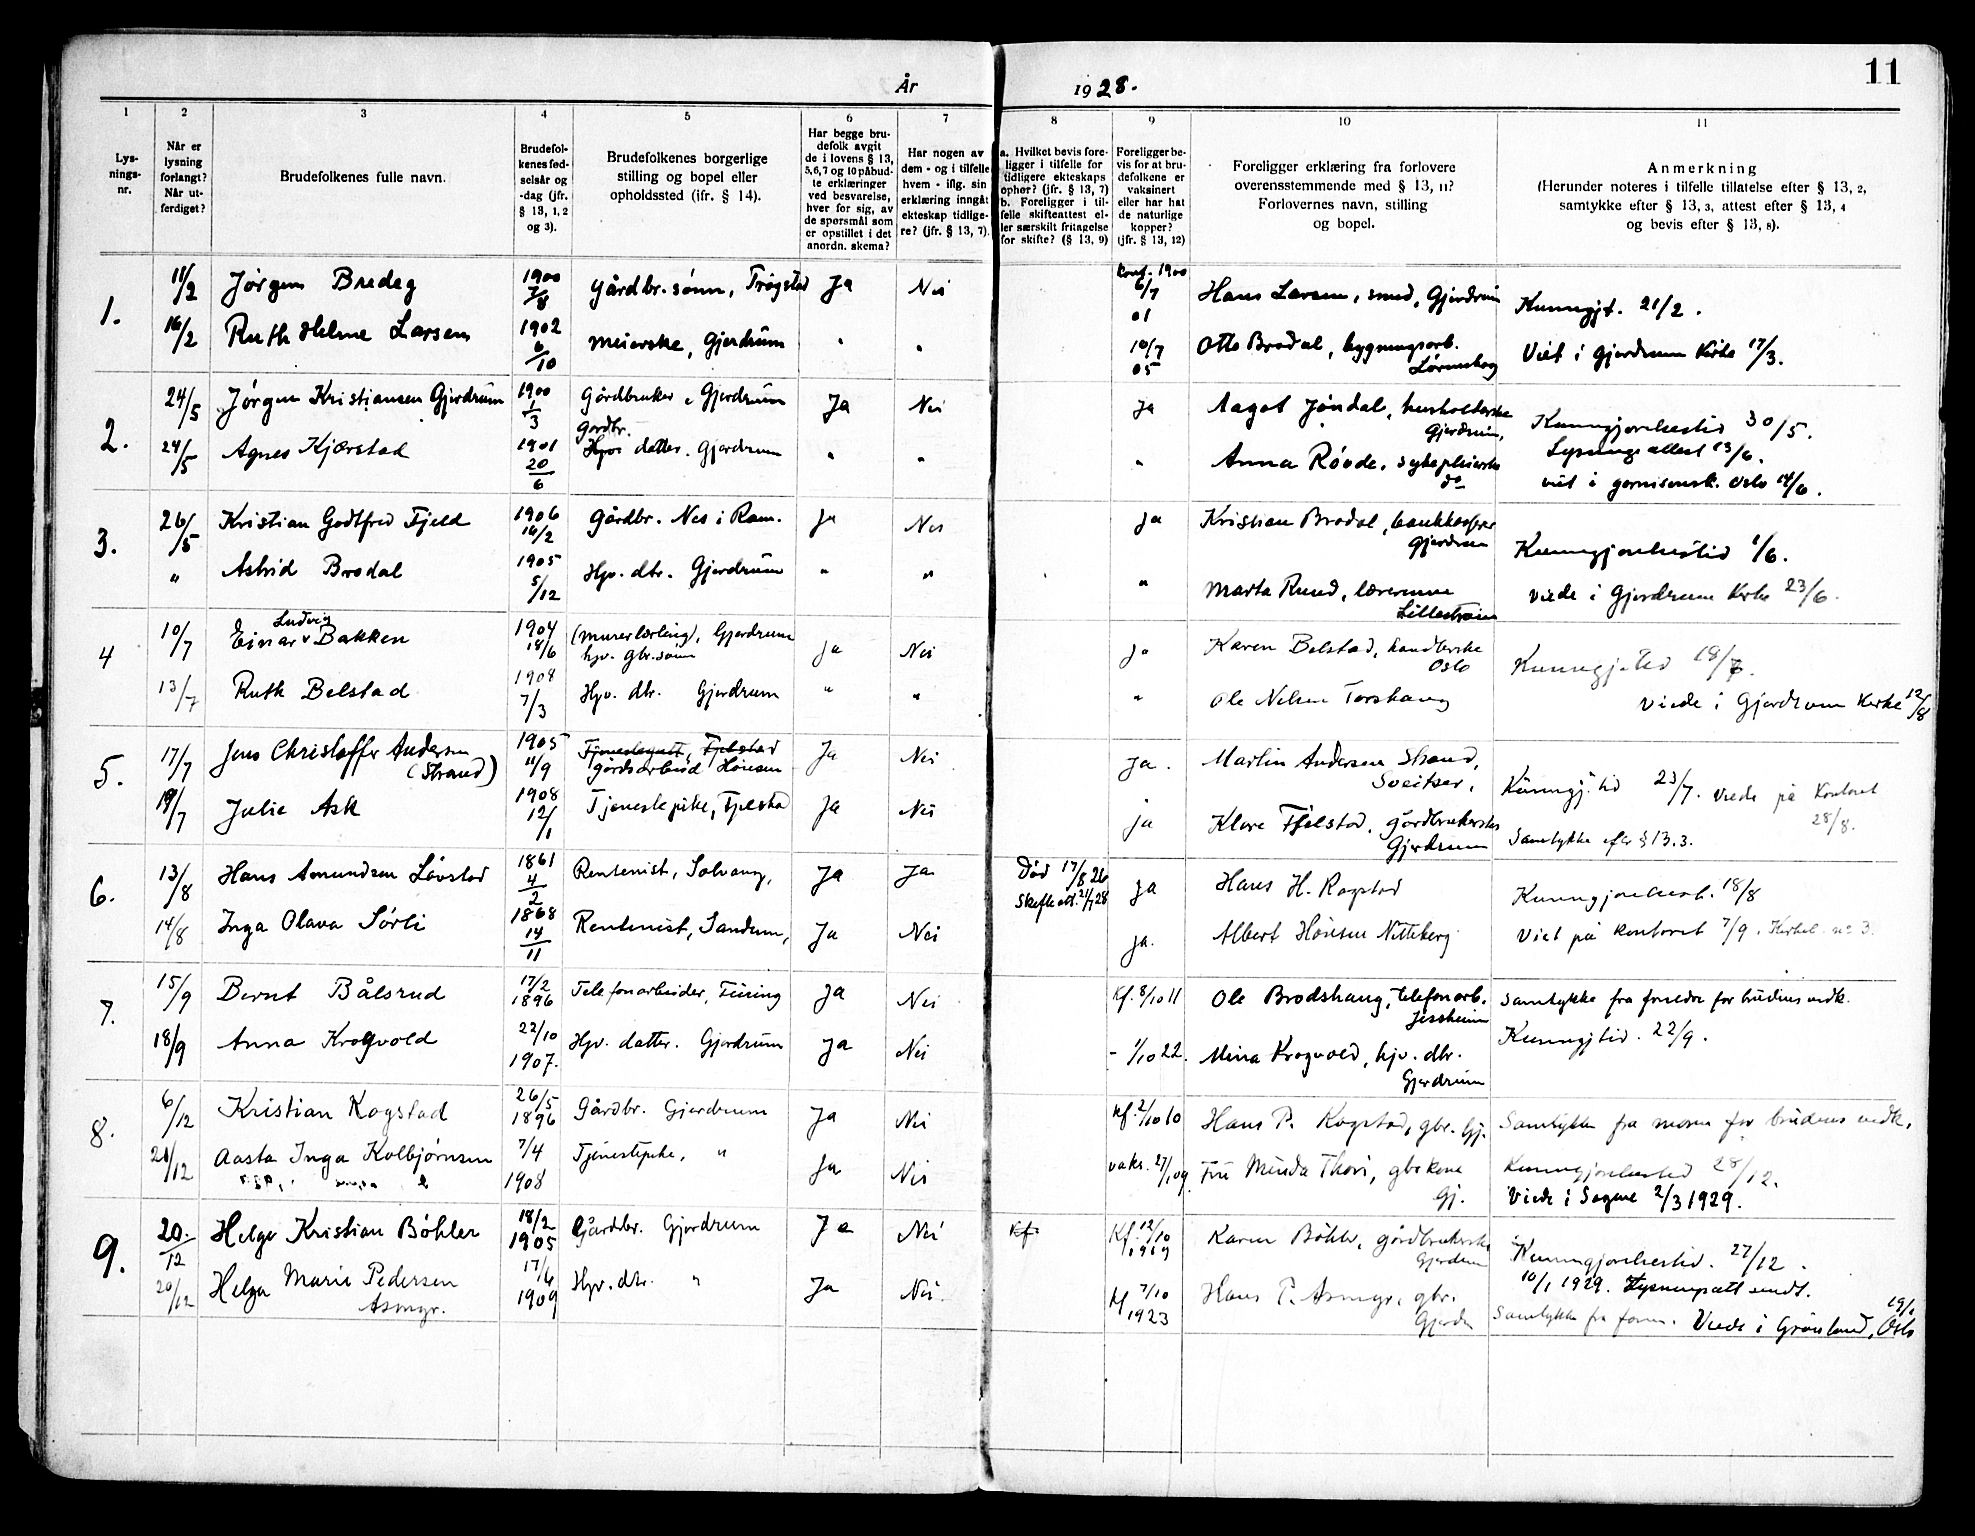 År 1928.
11
1 2 3 4 5 6 7 8 9 10 11
Lysningsnr.
Når er lysning forlangt? Når utferdiget?
Brudefolkenes fulle navn.
Brudefolkenes fødselsår og -dag (jfr. § 13, 1, 2 og 3).
Brudefolkenes borgerlige stilling og bopel eller opholdssted (ifr. § 14).
Har begge brudefolk avgit de i lovens § 13, 5,6,7 og 10 påbudte erklæringer ved besvarelse, hver for sig, av de spørsmål som er opstillet i det anordn. skema?
Har nogen av dem - og i tilfelle hvem - iflg. sin erklæring inngåt ekteskap tidligere? (jfr. § 13, 7).
a. Hvilket bevis foreligger i tilfelle for tidligere ekteskaps ophør? (jfr. § 13, 7) b. Foreligger i tilfelle skifteattest eller særskilt fritagelse for skifte? (§ 13, 9)
Foreligger bevis for at brudefolkene er vaksinert eller har hat de naturlige kopper? (jfr. § 13, 12)
Foreligger erklæring fra forlovere overensstemmende med § 13, 11? Forlovernes navn, stilling og bopel.
Anmerkning (Herunder noteres i tilfelle tillatelse efter § 13, 2, samtykke efter § 13, 3, attest efter § 13, 4 og bevis efter § 13, 8).
1. 11/2 Jørgen Bredeg 1900 7/8 Gårdbr. sønn, Trøgstad Ja Nei Konf. 1900 6/7 01 Hans Larsen, smed, Gjerdrum Kunngjt. 21/2.
16/2 Ruth Helene Larsen 1902 6/10 Meierske, Gjerdrum " " 10/7 05 Otto Brodal, bygningsarb. Viet i Gjerdrum Kirke 17/3.
2. 24/5 Jørgen Kristiansen Gjerdrum 1900 1/3 Gårdbruker, Gjerdrum Ja Nei Ja Aagot Jøndal, husholderske Gjerdrum, Kunngjørelsestid 30/5.
24/5 Agnes Kjærstad 1901 20/6 Gårdbr. datter. Gjerdrum " " " Anna Røvde, sykepleierske do Lysningsattest 13/6.
viet i garnisonsk. Oslo 14/6.
3. 26/5 Kristian Godtfred Fjeld 1906 16/2 Gårdbr. Nes i Rom. Ja Nei Ja Kristian Brodal, bankkasserer Gjerdrum Kunngjørelsestid 1/6.
" Astrid Brodal 1905 5/12 Hjv. dtr. Gjerdrum " " " Marta Ruud, lærerinne Lillestrøm Viede i Gjerdrum Kirke 23/6.
4 10/7 Einar Ludvig Bakken 1904 18/6 (Murerlærling), Gjerdrum hjv. gbr. sønn Ja Nei Ja Karen Belstad, handlerske Oslo Kunngj. tid 18/7.
13/7 Ruth Belstad 1908 7/3 Hjv. dtr. Gjerdrum " " " Ole Nilsen Torshaug Viede i Gjerdrum Kirke 12/8
5. 17/7 Jens Christoffer Andersen (Strand) 1905 11/9 Gårdsarbeid Hønsen Ja Nei Ja. Martin Andersen Strand, Sveitser, Kunngj. tid 23/7. Viede på Kontoret 28/8.
19/7 Julie Ask 1908 12/1 Tjenestepike, Fjelstad Ja Nei ja Klara Fjelstad, Gårdbrukerske Gjerdrum Samtykke efter § 13.3.
6. 13/8 Hans Amundsen Løvstad 1861 4/2 Rentenist, Solvang, Ja Ja Død 17/8 26 Skifteatt. 21/7 28 Ja Hans H. Rogstad Kunngjørelsest. 18/8
14/8 Inga Olava Sørli 1868 14/11 Rentenist, Sandum, Ja Nei ja. Albert Hønsen Nitteberg Viet på Kontoret 7/9. Kirkeb. no 3.
7. 15/9 Bernt Bålsrud 17/2 1896 Telefonarbeider, Ja Nei Kf. 8/10 11 Ole Brodshaug, telefonarb. Jessheim Samtykke fra foreldre for brudens vedk.
18/9 Anna Krogvold 22/10 1907. Hjv. datter. Gjerdrum Ja Nei - 1/10 22. Mina Krogvold, hjv. dtr. Gjerdrum Kunngjtid. 22/9.
8. 6/12 Kristian Rogstad 26/5 1896 Gårdbr. Gjerdrum Ja Nei Kf. 2/10 10 Hans P. Rogstad, gbr. Gj. Samtykke fra moren for brudens vedk.
21/12 Aasta Inga Kolbjørnsen 7/4 1908 Tjenestepike, " Ja Nei vaks. 27/1 09 Fru Minda Thori, gbr.kone Gj. Kunngjørelsestid 28/12.
Viede i Sagene 2/3 1929.
9. 20./12 Helge Kristian Bøhler 18/2 1905 Gårdbr. Gjerdrum Ja Nei Kf. Kf. 12/10 1919 Karen Bøhler, gårdbrukerske Gjerdrum Kunngjørelsestid. 27/12.
20/12 Helga Marie Pedersen Asmyr. 17/6 1909 Hjv. dtr. " Ja Nei. Kf 7/10 1923 Hans P. Asmyr, gbr. Gjerdr 10/1 1929. Lysningsatt sendt.
Samtykke fra faren. Viede i Grønland, Oslo 19/1